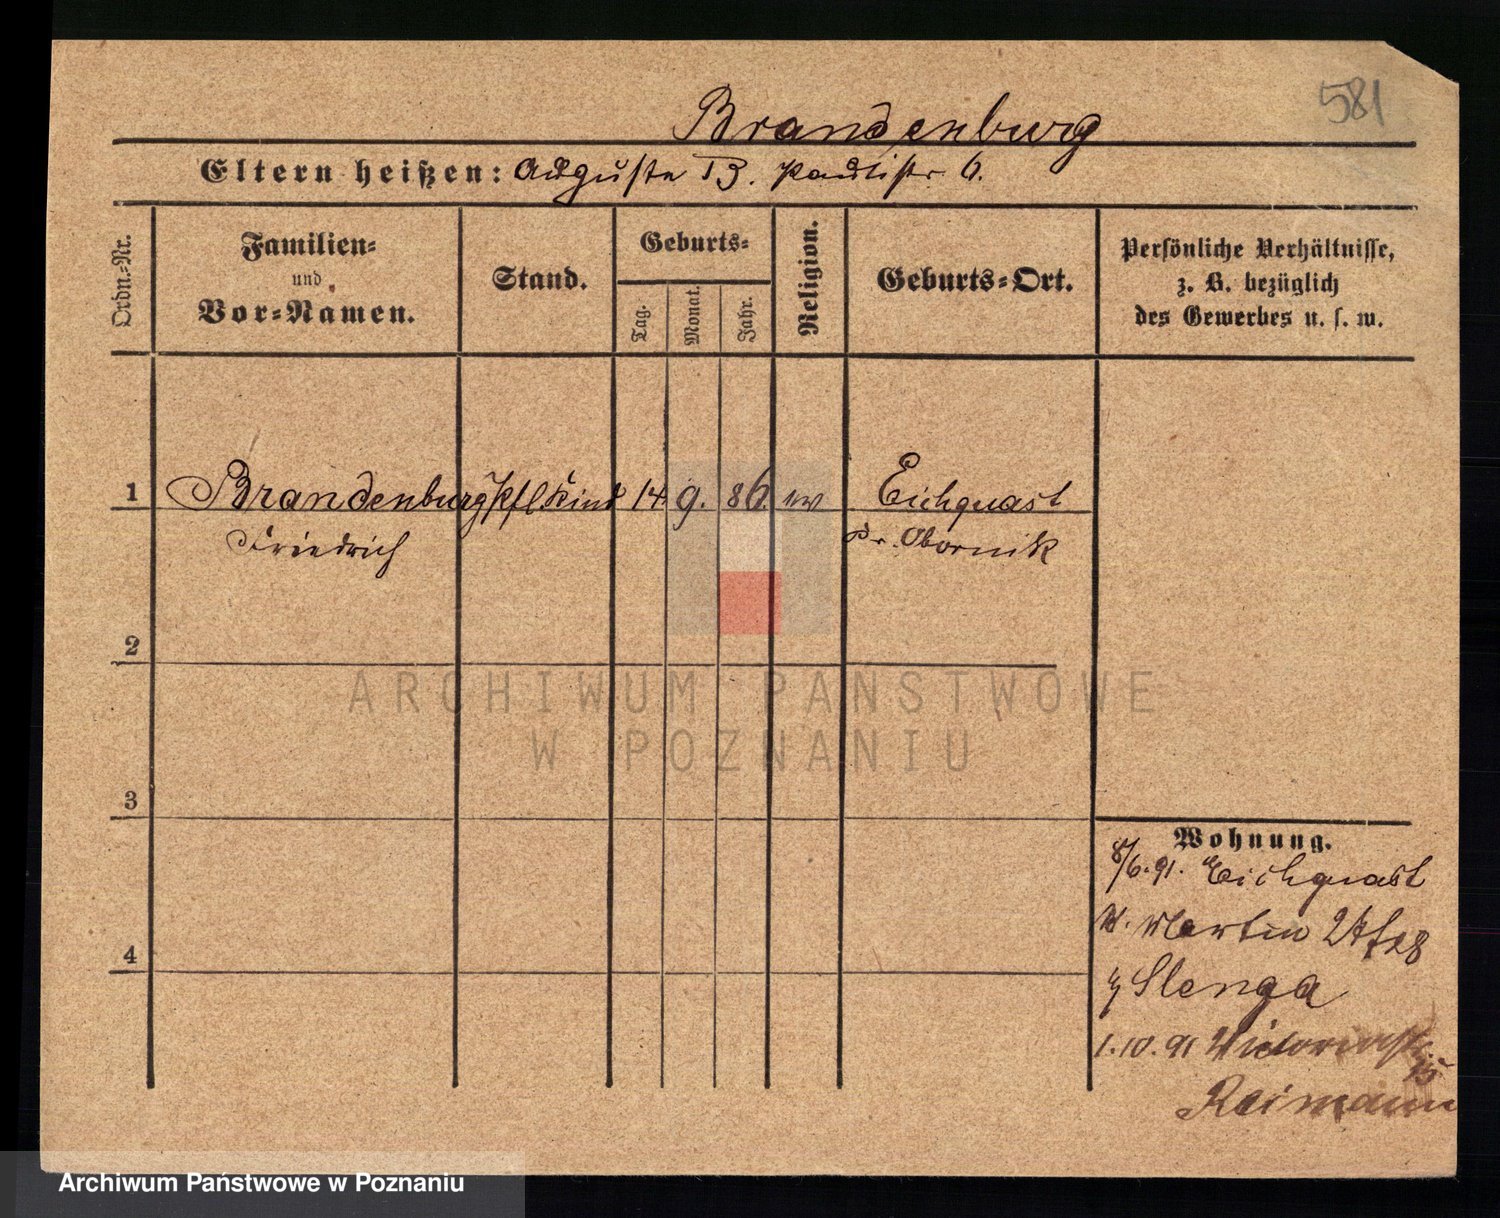 581
Brandenburg
Eltern heißen: Auguste B. Paulistr. 6.
Ordn.-Nr.
Familien-
und
Vor-Namen.
Stand.
Geburts-
Tag.
Monat.
Jahr.
Religion.
Geburts-Ort.
Persönliche Verhältnisse,
z. B. bezüglich
des Gewerbes u. s. w.
1 Brandenburg Pfl. Kind 14. 9. 86. Eichquast
Friedrich
Obornik
2
3
4
Wohnung.
8/6. 91. Eichquast
Martin
Slenga
1.10.91 Victoriastr.
15
Reimann
ARCHIWUM PAŃSTWOWE
W POZNANIU
Archiwum Państwowe w Poznaniu